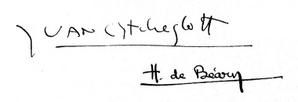 IVAN Chtchegloff
H. de Béarn